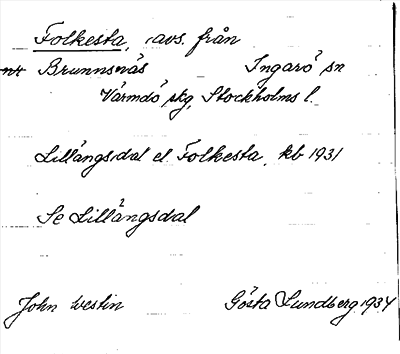 Folkesta, avs. från
nr Brunnsnäs Ingarö sn
Värmdö skg, Stockholms l.
Lillängsdal el Folkesta, kb 1931
Se Lillängsdal
John Westin Gösta Lundberg 1934